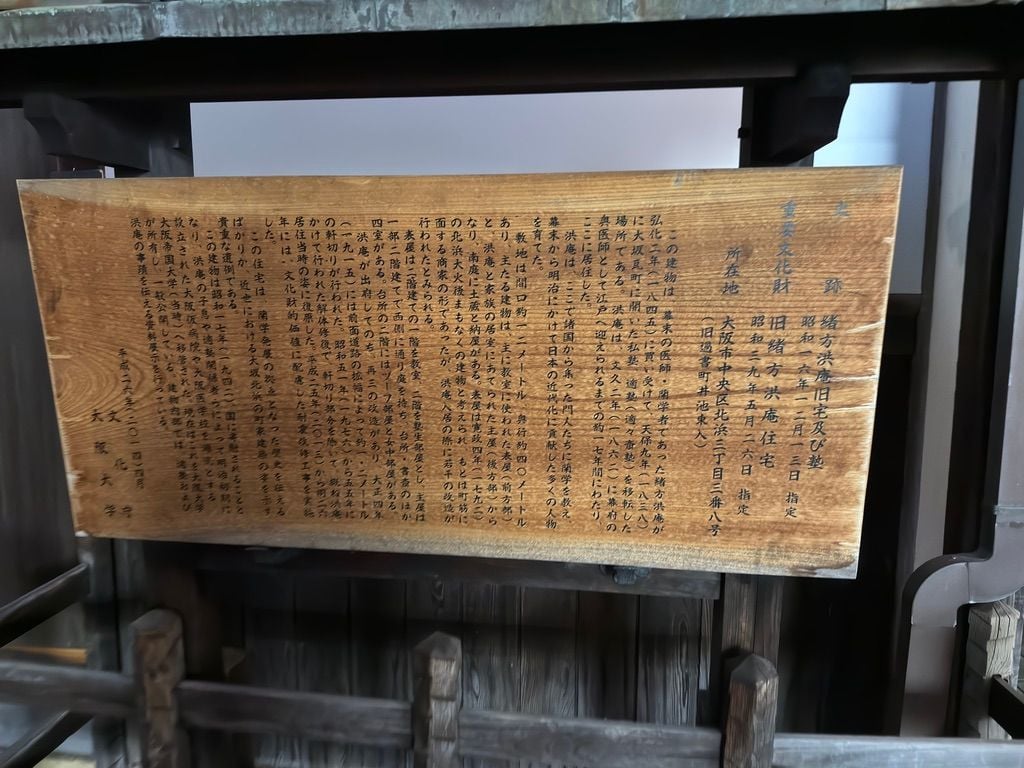 史跡 緒方洪庵旧宅及び塾
昭和一六年一二月一三日 指定
重要文化財 旧緒方洪庵住宅
昭和三九年五月二六日 指定
所在地 大阪市中央区北浜三丁目三番八号
(旧過書町井池東入)
この建物は、幕末の医師・蘭学者であった緒方洪庵が
弘化二年(一八四五)に買い受けて、天保九年(一八三八)
に大坂瓦町に開いた私塾 適塾(適々斎塾)を移転した
場所である。洪庵は、文久二年(一八六二)に幕府の
奥医師として江戸へ迎えられるまでの約一七年間にわたり、
ここに居住した。
洪庵は、ここで諸国から集った門人たちに蘭学を教え、
幕末から明治にかけて日本の近代化に貢献した多くの人物
を育てた。
敷地は間口約一二メートル、奥行約四〇メートル
あり、主たる建物は、主に教室に使われた表屋(前方部)
と、洪庵と家族の居室にあてられた主屋(後方部)から
なり、南庭に土蔵と納屋がある。表屋は寛政四年(一七九二)
の北浜大火後まもなくの建物と考えられ、もとは町筋に
面する商家の形であったが、洪庵入居の際に若干の改造が
行われたとみられる。
表屋は二階建ての一階を教室、二階を塾生部屋とし、主屋は
一部二階建てで西側に通り庭を持ち、台所・書斎のほか
四室がある。台所の二階にはヅーフ部屋と女中部屋がある。
洪庵が出府してのち、再三の改造があり、大正四年
(一九一五)には前面道路の拡幅によって約一・二メートル
の軒切りが行われた。昭和五一年(一九七六)から五五年に
かけて行われた解体修復で、軒切り部分を除いて、概ね洪庵
居住当時の姿に復原した。平成二五年(二〇一三)から明二六
年には、文化財的価値に配慮した耐震改修工事を実施
した。
この住宅は、蘭学発展の拠点となった歴史を伝える
ばかりか、近世における大坂北浜の町家建築の姿を示す
貴重な遺例である。
この建物は昭和一七年(一九四二)国に寄贈されること
なり、洪庵の子息や適塾関係者によって明治初期に
設立された大阪仮病院や大阪医学校を源流とする
大阪帝国大学(当時)へ移管された。現在はこれを大阪大学
が所有し、一般公開している。建物内部では、適塾および
洪庵の事績を伝える資料展示を行っている。
平成二六年(二〇一四)四月
文化庁
大阪大学